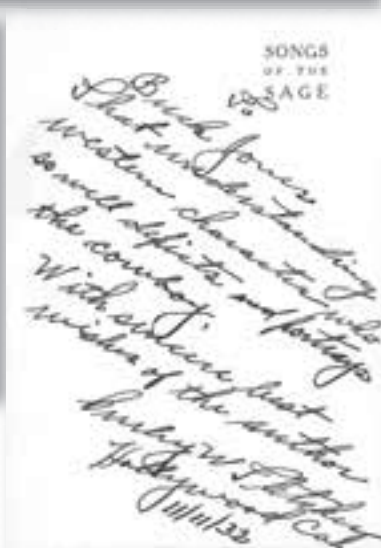 SONGS
OF THE
SAGE
To
Buck Jones
That understanding
western character who
so well depicts and portrays
the cowboy.
With sincere best
wishes of the author
Curley W Fletcher
Hollywood Cal
11/11/33